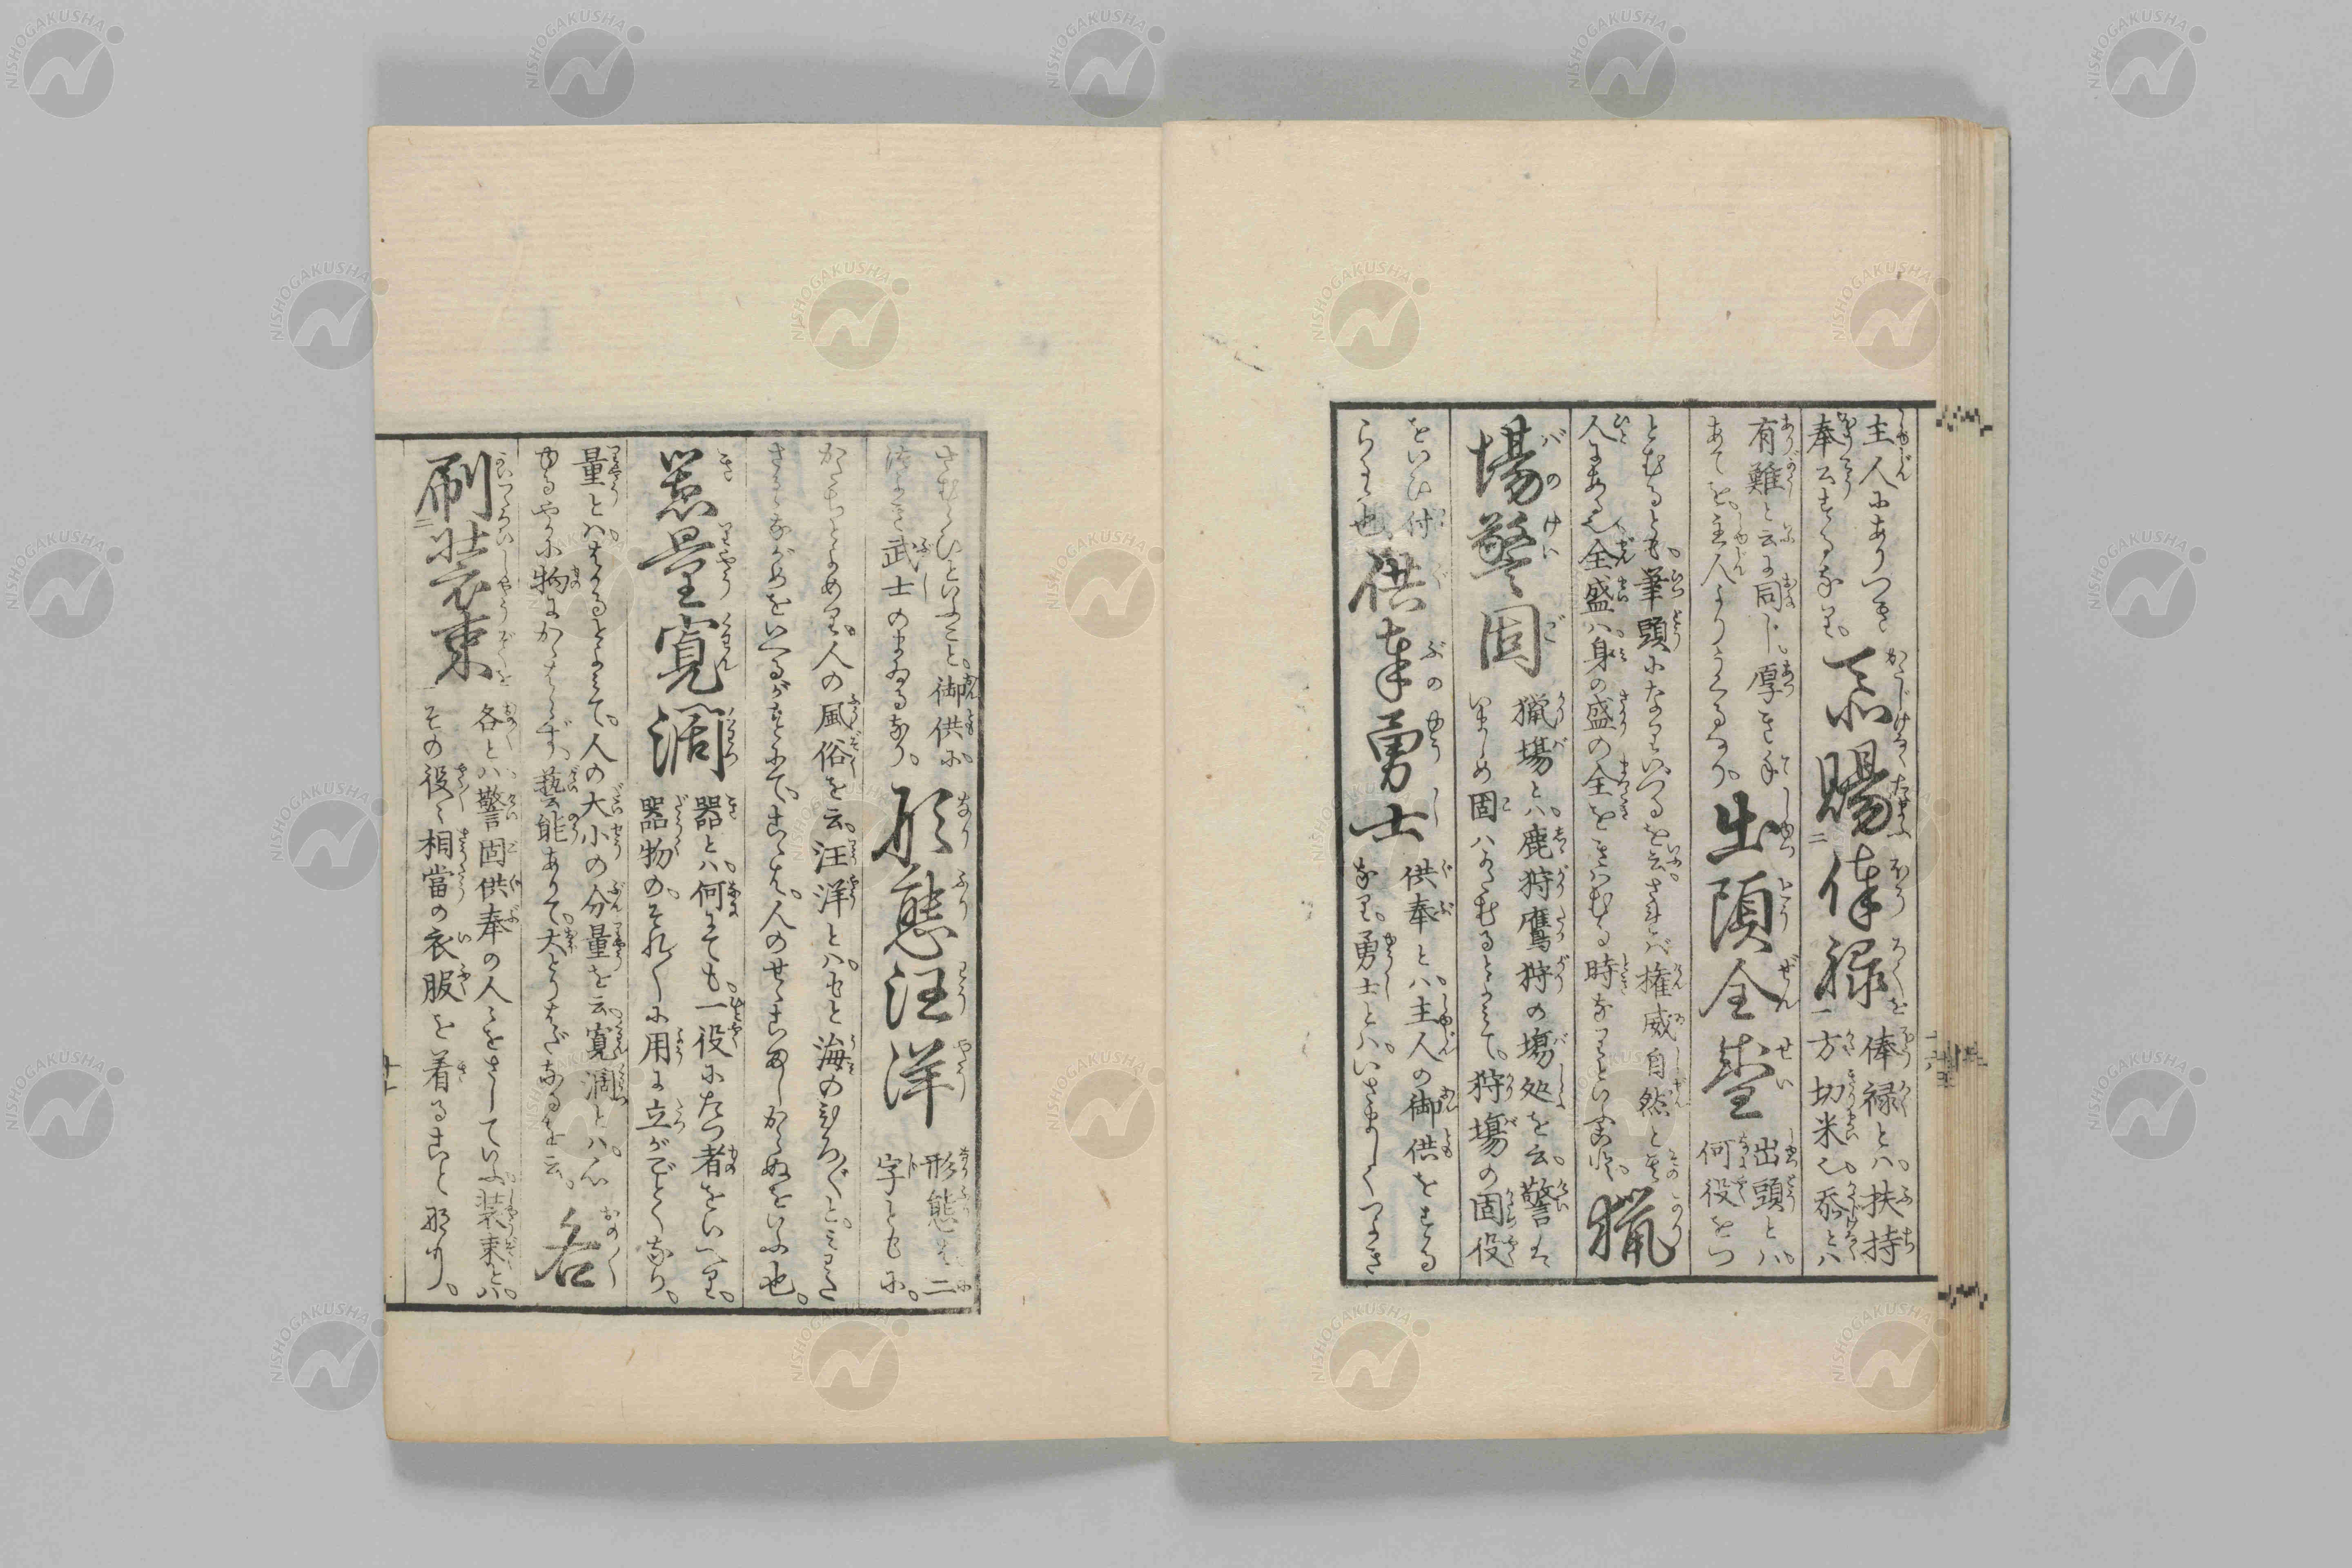 主人にありつき
奉公するなり。
忝賜俸禄
俸禄とハ。扶持
方切米也。忝とハ
有難と云に同し。厚き手
あてを。主人よりうくるなり。
出頭全盛
出頭とハ。
何役をつ
とむるとも。筆頭になりていづるを云。されバ権威自然と其
人にあり。全盛ハ身の盛の全をきハむる時なりといふ心。
猟
場警固
猟場とハ。鹿狩鷹狩の場処を云。警は
いましめ固ハかたむるとよみて。狩場の固役
をいひ付
らる也
供奉勇士
供奉とハ主人の御供をする
なり。勇士とハ。いさましくつよき
さむらひといふこと。御供に
つよき武士のまゐるなり。
形態汪洋
形態は二
字ともに。
かたちとよめり。人の風俗を云。汪洋とハもと海のひろ〴〵と。
器量寛濶
器とハ。何にても。一役にたつ者をいへり。
器物の。それ〳〵に用に立がごとくなり。
量とハ。はかるとよみて。人の大小の分量を云。寛濶とハ。心
ゆるやかに物にかゝはらず。藝能ありて。大とうはだなるを云。
各
刷装束
各とハ。警固供奉の人々をさしていふ装束とハ。
その役々相當の衣服を着ること也。
NISHOGAKUSHA